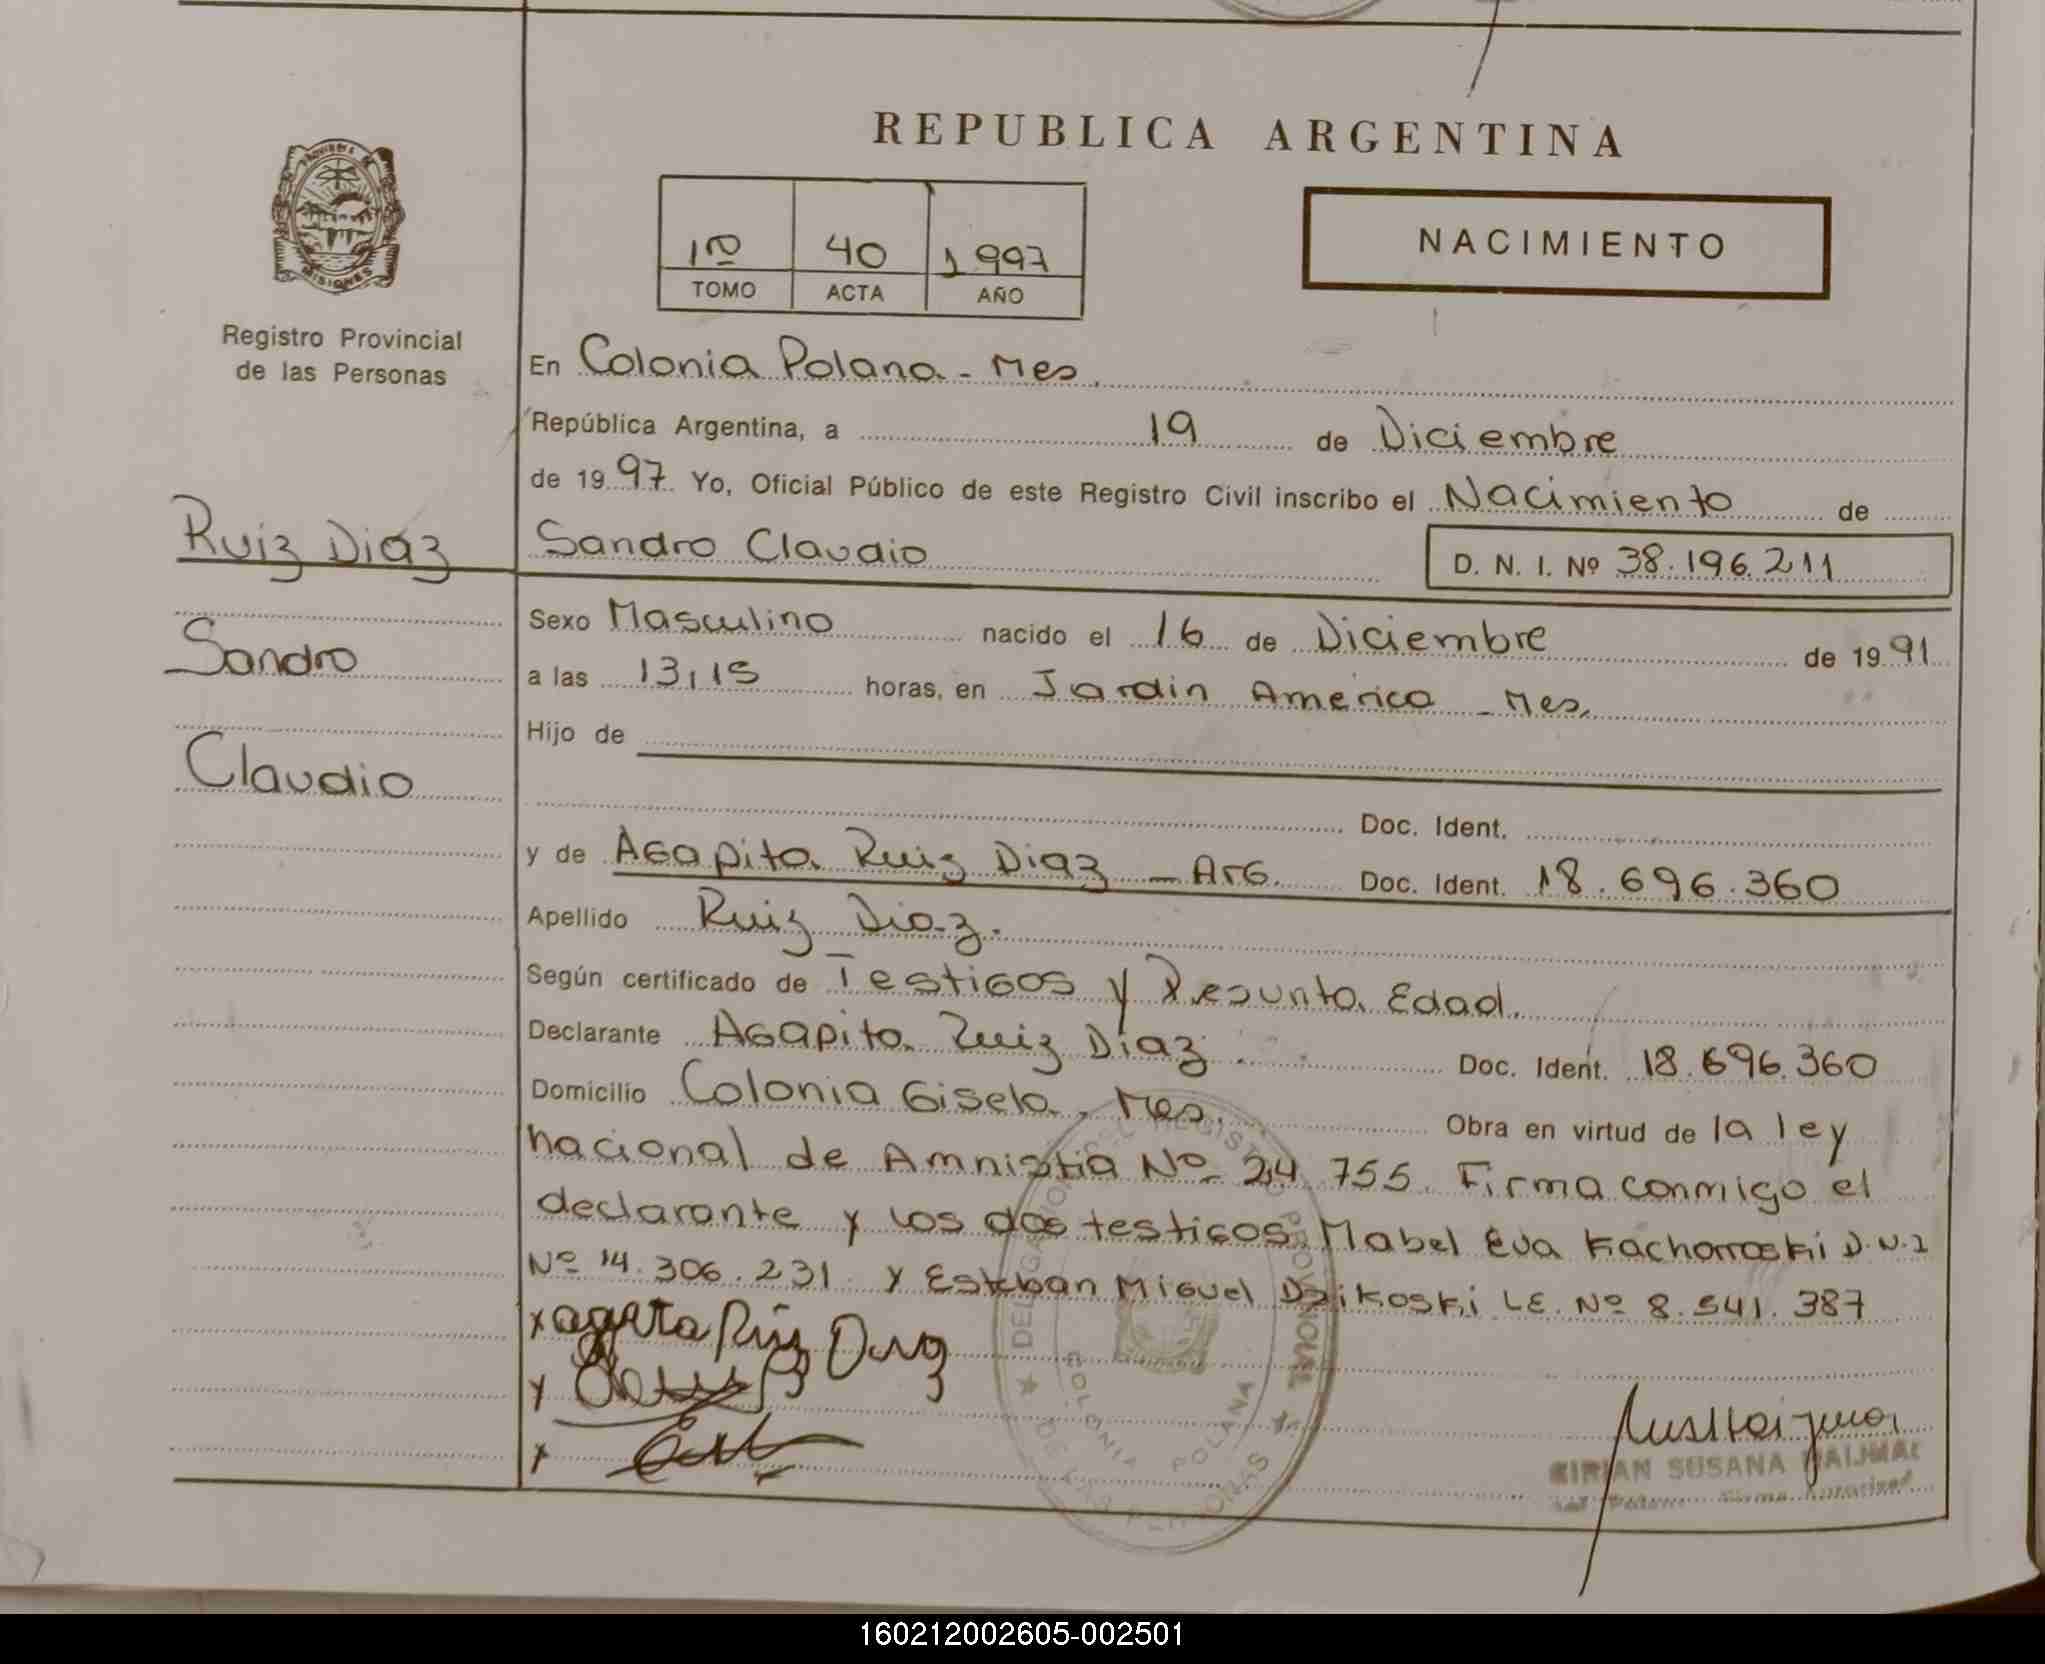 REPUBLICA ARGENTINA
PROVINCIA DE
MISIONES
Registro Provincial
de las Personas
1º 40 1997
TOMO ACTA AÑO
NACIMIENTO
En Colonia Polana - Mes.
República Argentina, a 19 de Diciembre
de 1997 Yo, Oficial Público de este Registro Civil inscribo el Nacimiento de
Ruiz Diaz
Sandro
Claudio
Sandro Claudio D. N. I. Nº 38.196.211
Sexo Masculino nacido el 16 de Diciembre de 1991
a las 13,15 horas, en Jardin America - Mes.
Hijo de
Doc. Ident.
y de Agapita Ruiz Diaz - Arg. Doc. Ident. 18.696.360
Apellido Ruiz Diaz.
Según certificado de Testigos y Presunta Edad.
Declarante Agapita Ruiz Diaz Doc. Ident. 18.696.360
Domicilio Colonia Gisela - Mes. Obra en virtud de la ley
nacional de Amnistia Nº 24.755. Firma conmigo el
declarante y los dos testigos Mabel Eva Kachorroski D.N.I
Nº 14.306.231 y Esteban Miguel Dzikoski L.E. Nº 8.541.387
x agapita Ruiz Diaz
DELEGACION DEL REGISTRO PROVINCIAL
DE LAS PERSONAS
COLONIA POLANA
SUSANA
160212002605-002501